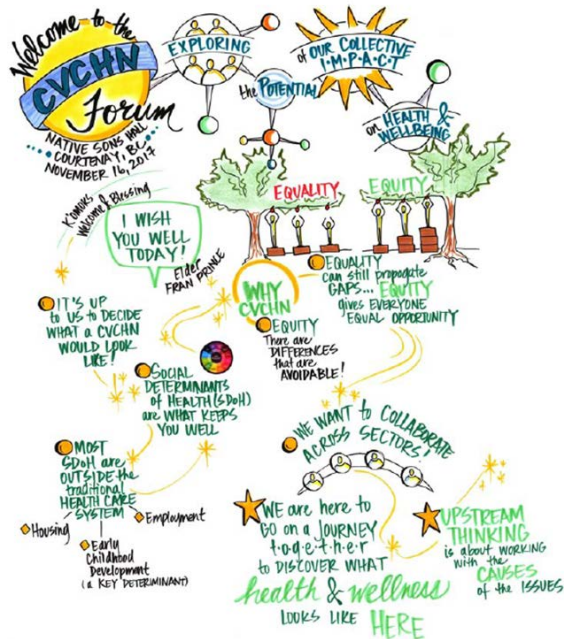 Welcome to the
CVCHN
Forum
NATIVE SONS HALL
COURTENAY, BC
NOVEMBER 16, 2017
EXPLORING
the POTENTIAL
of OUR COLLECTIVE
I·M·P·A·C·T
on HEALTH &
WELLBEING
EQUALITY
EQUITY
K'omoks
Welcome & Blessing
I WISH
YOU WELL
TODAY!
Elder
FRAN PRINCE
WHY
CVCHN
EQUALITY
can still propogate
GAPS... EQUITY
gives EVERYONE
EQUAL OPPORTUNITY
EQUITY
There are
DIFFERENCES
that are
AVOIDABLE!
IT'S UP
to US to DECIDE
WHAT a CVCHN
WOULD LOOK
LIKE!
SOCIAL
DETERMINANTS
of HEALTH (SDoH)
are WHAT KEEPS
YOU WELL
MOST
SDoH are
OUTSIDE the
traditional
HEALTH CARE
SYSTEM
Housing
Early
Childhood
Development
(a KEY DETERMINANT)
Employment
WE WANT to COLLABORATE
ACROSS SECTORS!
WE are here to
GO on a JOURNEY
t·o·g·e·t·h·e·r
to DISCOVER WHAT
health & wellness
LOOKS LIKE HERE
UPSTREAM
THINKING
is about WORKING
with the
CAUSES
of the ISSUES